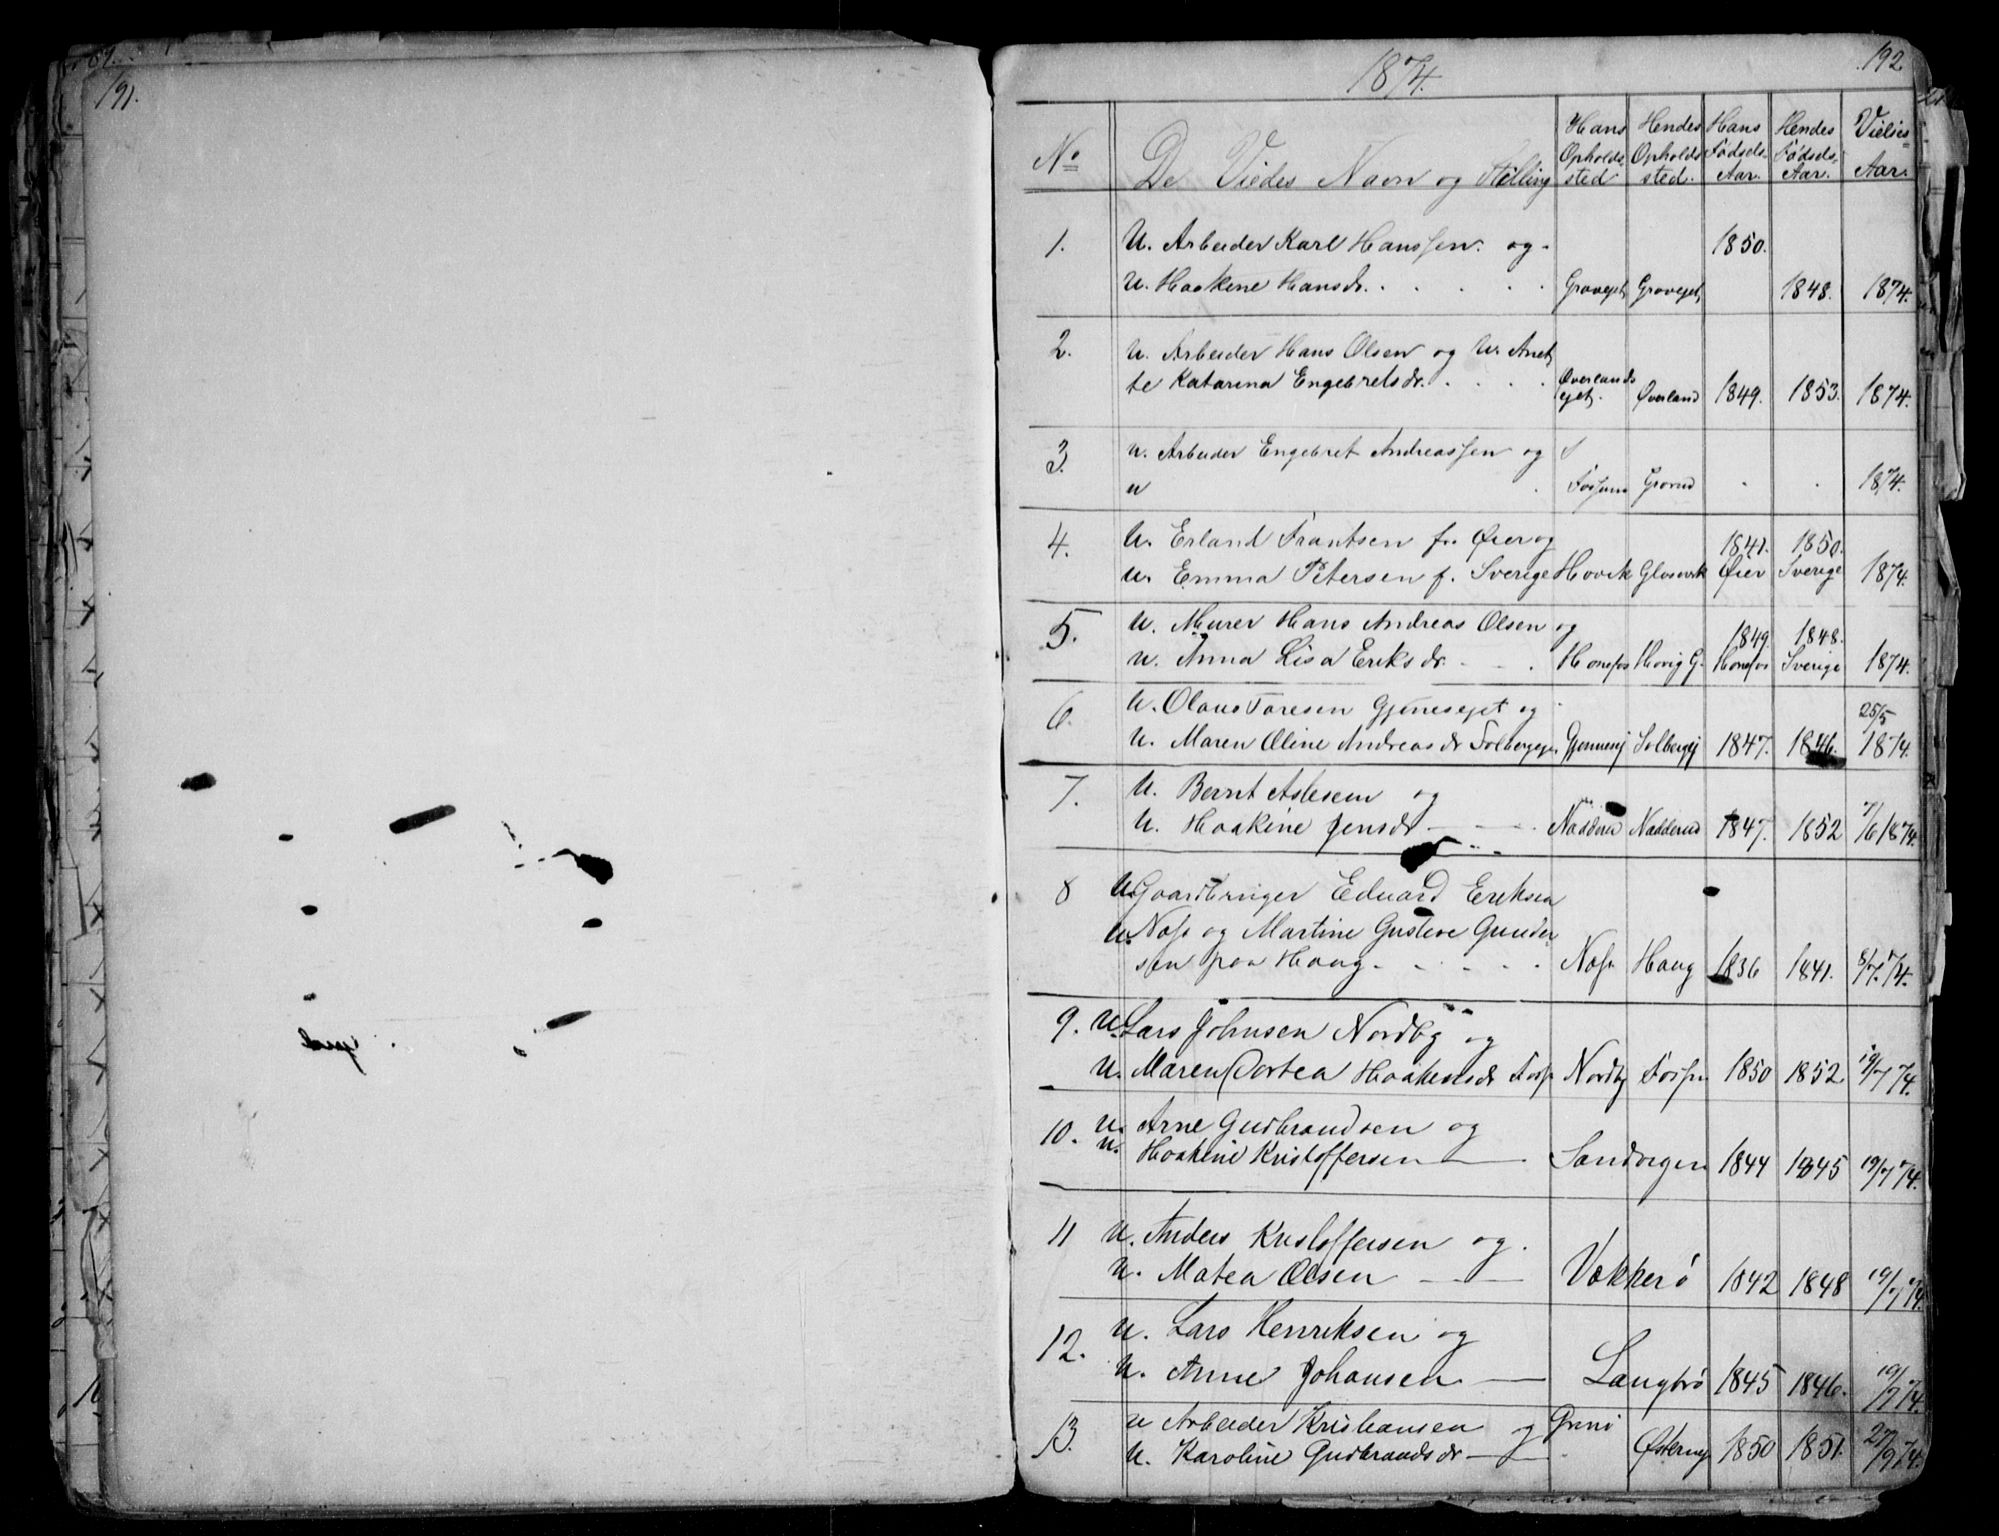 191.
192
1874.
No
De Viedes Navn og Stilling
Hans Opholds sted
Hendes Opholds sted.
Hans Fødsels- Aar.
Hendes Fødsels- Aar.
Vielses- Aar.
1. U. Arbeider Karl Hanssen. og 1850.
U. Haakine Hansdr. Gravejet, Gravejet, 1848. 1874.
2. U. Arbeider Hans Olsen og U. Anet,
te Katarina Engebretsdr. Øverlands ejet, Øverland 1849. 1853. 1874.
3. U. Arbeider Engebret Andreassen og
U Fossum Gravud 1874.
4. U. Erland Frantsen fr. Øier og 1841. 1850.
U. Emma Petersen f. Sverige Høvik Glasverk Øier Sverige 1874.
5. U. Murer Hans Andreas Olsen og 1849. 1848.
U. Anna Lisa Eriksdr. Hønefos Høvig G. Hønefos Sverige 1874.
6. U. Olaus Toresen Gjønesejet og 25/5
U. Maren Oline Andreasdr Solbergej. Gjønnesej Solbergej 1847. 1846. 1874.
7. U. Bernt Aslesen og
U. Haakine Jensdr Nadderu Nadderud 1847. 1852 7/6 1874.
8 U. Gaardbruger Eduard Eriksen
U. Næs og Martine Gustave Gunder
sen paa Haug. Næs Haug 1836 1841. 5/7. 74.
9. U. Lars Johnsen Nordby og
U. Maren Dortea Haakensdr Foss Nordby 1850 1852 19/7 74.
10. U. Arne Gudbrandsen og
U. Haakine Kristoffersen Sandvigen 1844 1845 19/7 74.
11 U. Anders Kristoffersen og
U. Matea Olsen Vækkerø 1842 1848 19/7 74.
12. U. Lars Henriksen og
U. Anne Johansen Langbrø 1845 1846. 19/7 74.
13. U Arbeider Kristiansen og Grinì
U. Karoline Gudbrandsdr Østernej 1850 1851. 27/9 74.